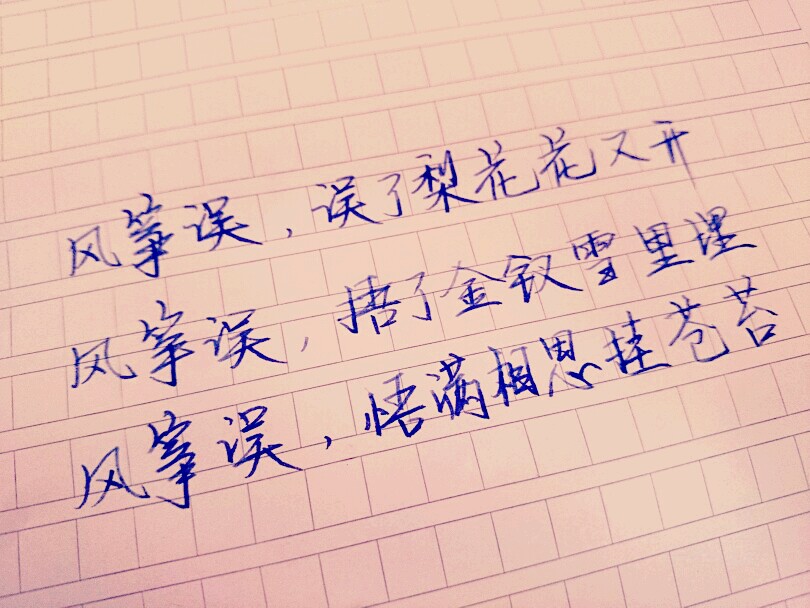 风筝误，误了梨花花又开
风筝误，捂了金钗雪里埋
风筝误，悟满相思挂苍苔